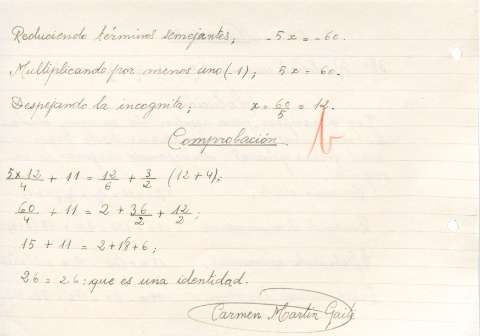 Reduciendo términos semejantes; -5x = -60.
Multiplicando por menos uno (-1); 5x = 60.
Despejando la incognita; x = 60/5 = 12.
Comprobación.
b
5x12/4 + 11 = 12/6 + 3/2 (12 + 4);
60/4 + 11 = 2 + 36/2 + 12/2;
15 + 11 = 2 + 18 + 6;
26 = 26: que es una identidad.
Carmen Martín Gaite